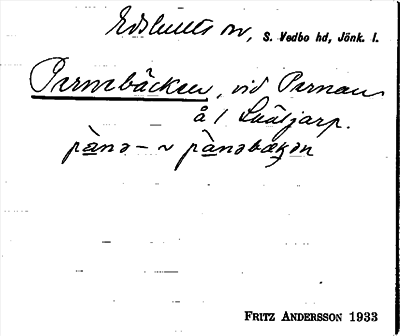 Edshults sn, S. Vedbo hd, Jönk. l.
Parnebäcken, vid Parnan
å / Snäljarp.
pànə- ~ pànəbækən
FRITZ ANDERSSON 1933